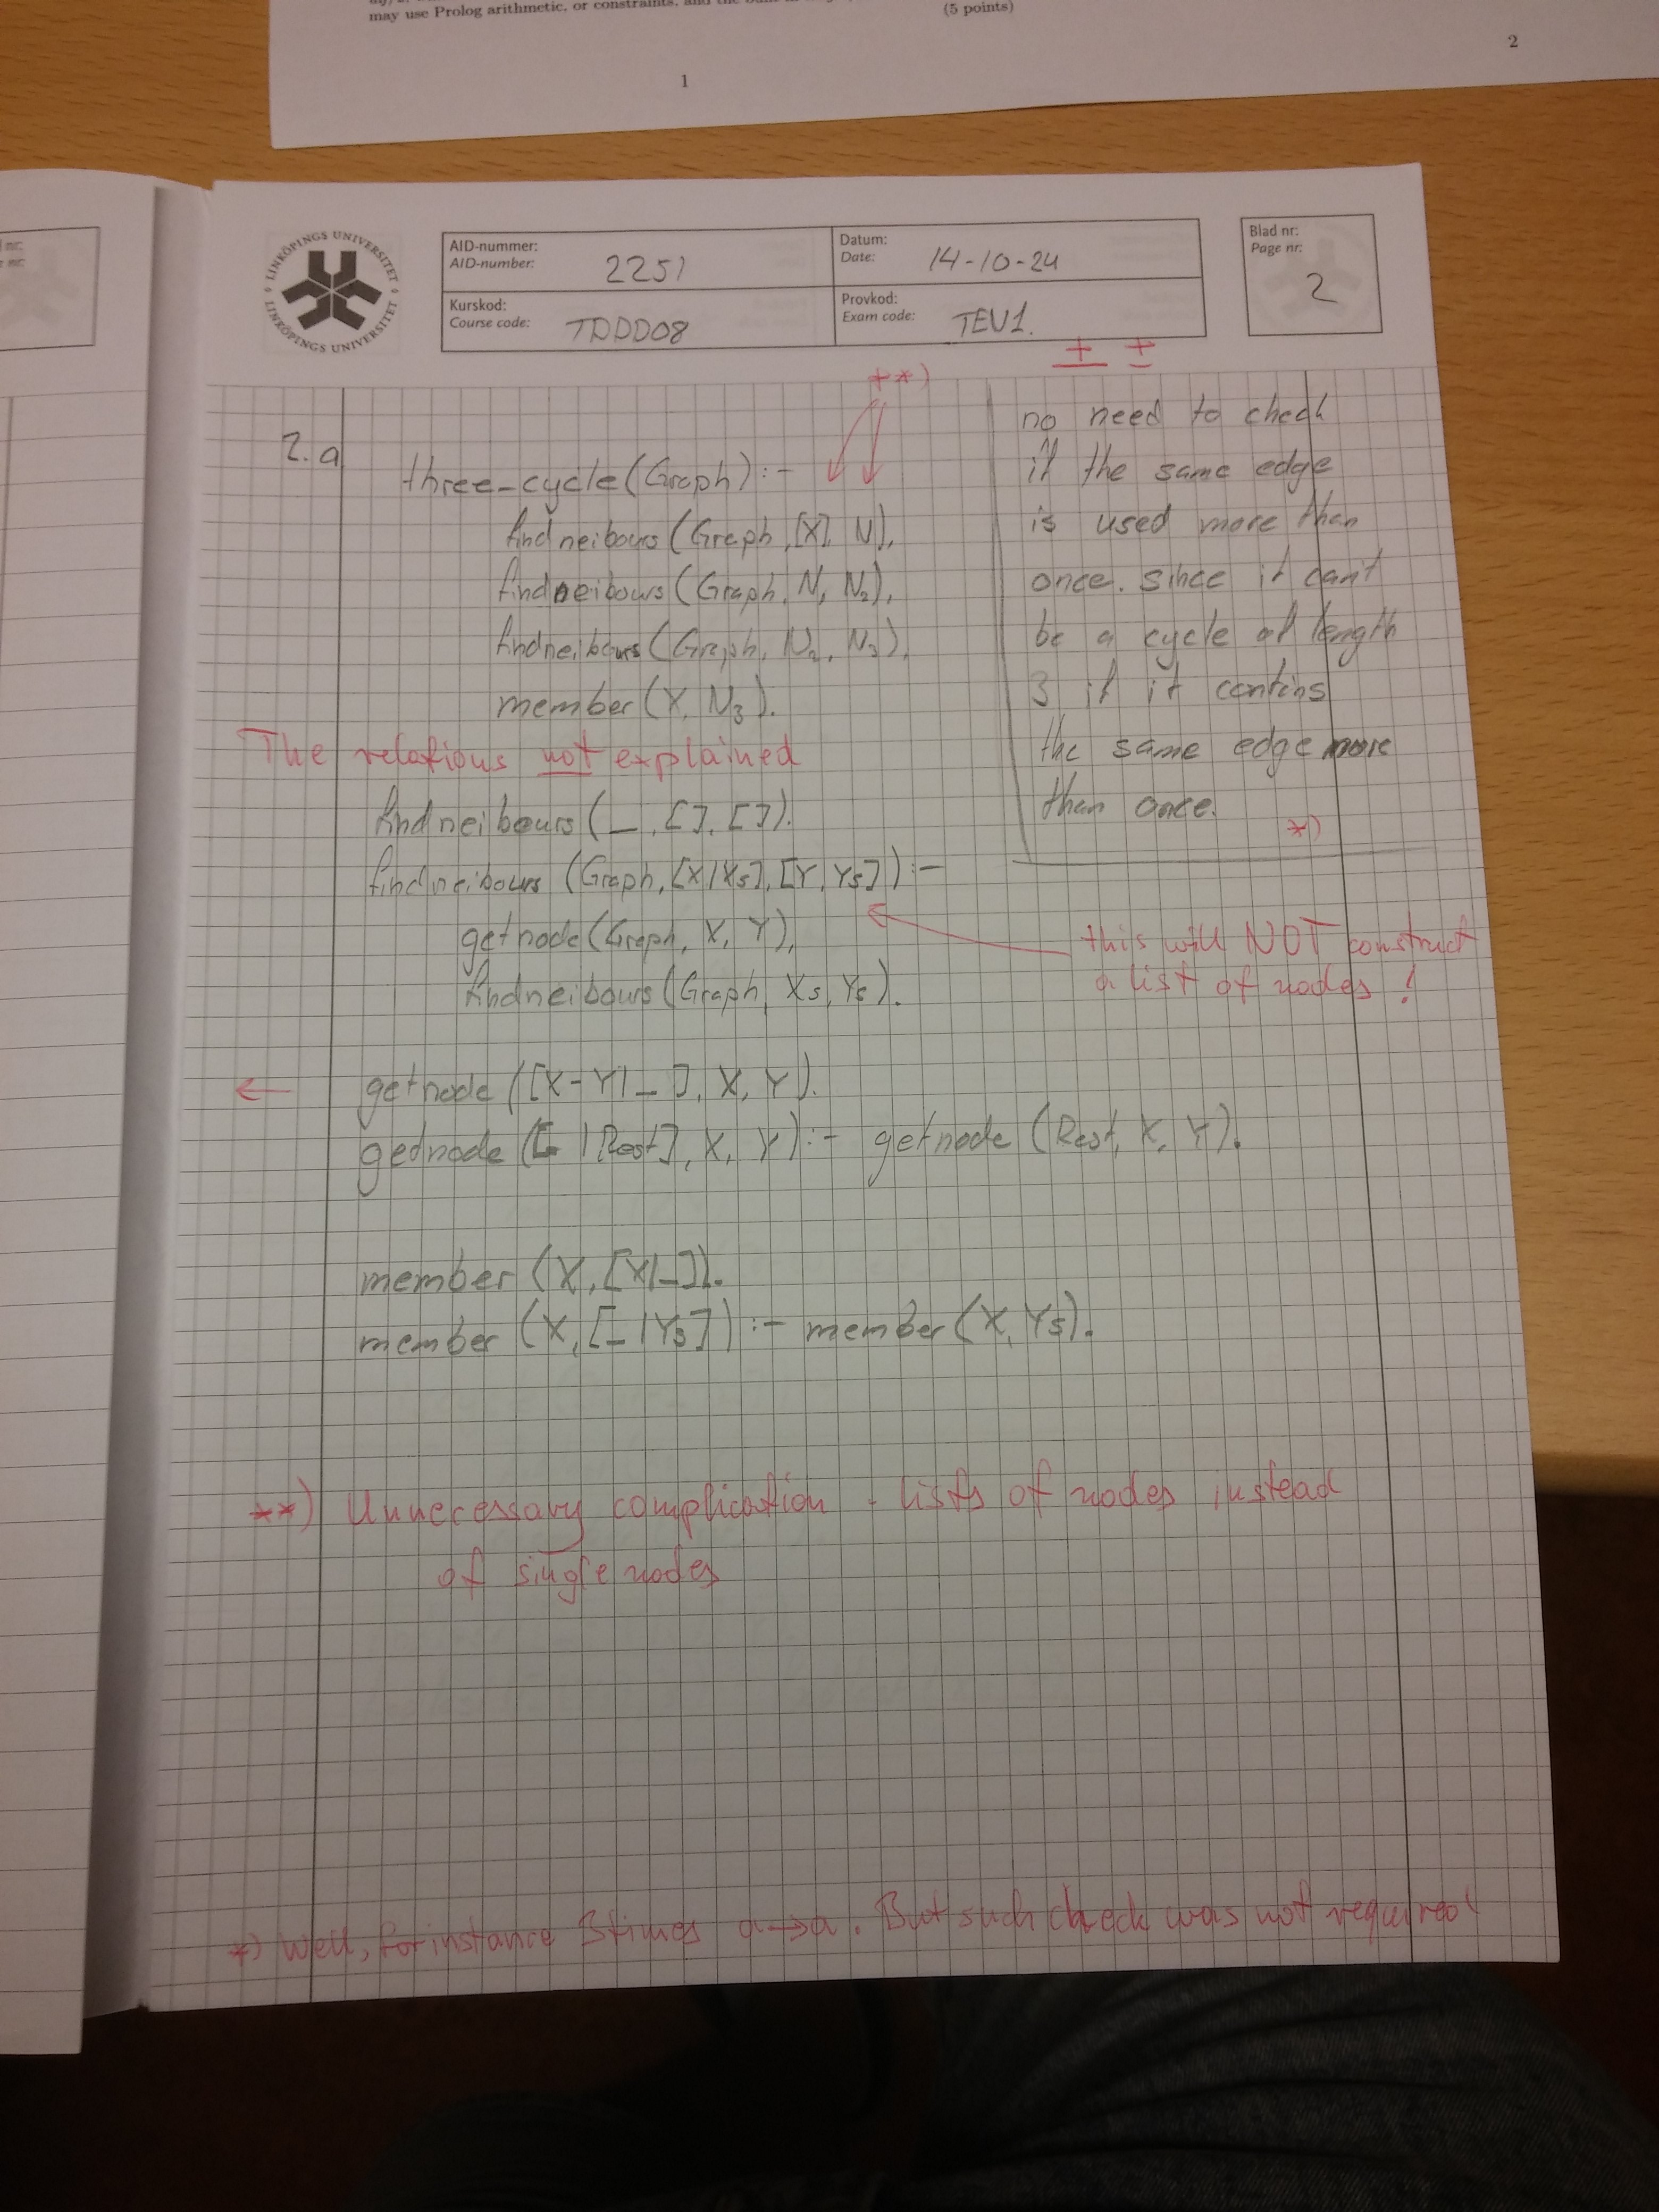 may use Prolog arithmetic, or constraints, and the
(5 points)
1
2
LINKÖPINGS UNIVERSITET
LINKÖPINGS UNIVERSITET
AID-nummer:
AID-number:
2251
Datum:
Date:
14-10-24
Kurskod:
Course code:
TDDD08
Provkod:
Exam code:
TEN1.
Blad nr:
Page nr:
2
+ +
**)
2.a
three-cycle(Graph):-
findneibours(Graph,[X], N),
findneibours(Graph, N, N2),
findneibours(Graph, N2, N3),
member(X, N3).
no need to check
if the same edge
is used more than
once. since it can't
be a cycle of length
3 if it contins
the same edge more
than once.
*)
The relations not explained
findneibours(_, [], []).
findneibours(Graph,[X|Xs],[Y,Ys]):-
getnode(Graph, X, Y),
findneibours(Graph, Xs, Ys).
this will NOT construct
a list of nodes!
getnode([X-Y|_], X, Y).
getnode([_|Rest], X, Y):- getnode(Rest, X, Y).
member(X,[X|_]).
member(X,[_|Ys]):- member(X, Ys).
**) Unnecessary complication - lists of nodes instead
of single nodes
*) Well, for instance 3 times a→a. But such check was not required!